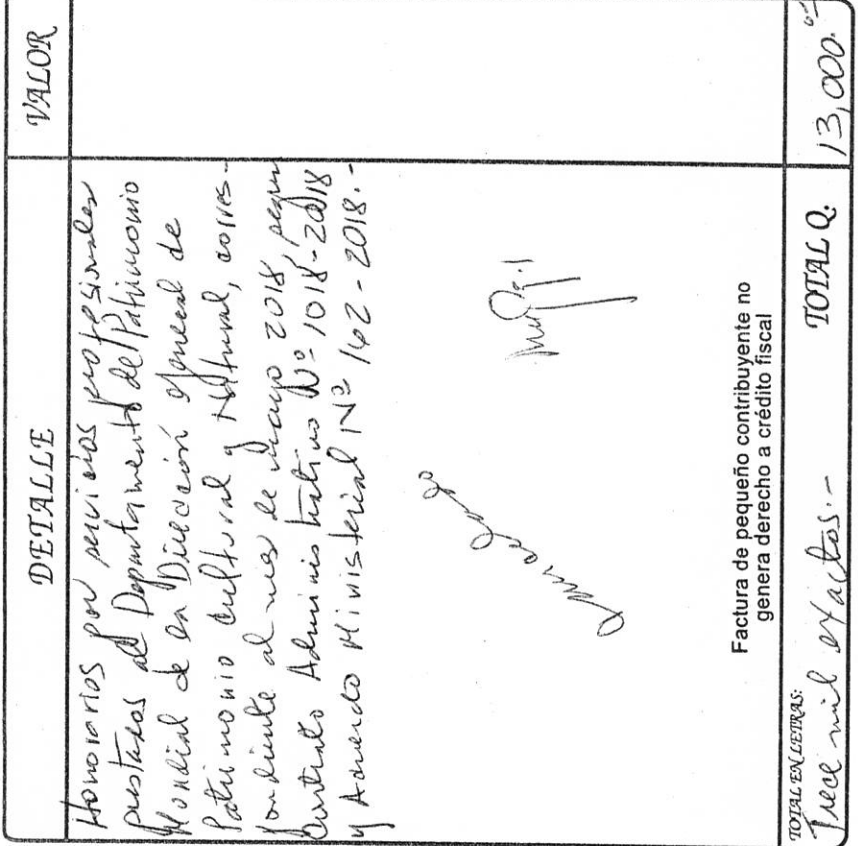 DETALLE
VALOR
Honorarios por servicios profesionales
prestados al Departamento del Patrimonio
Mundial de la Dirección General de
Patrimonio Cultural y Natural, corres-
pondiente al mes de mayo 2018, según
Contrato Administrativo Nº 1018-2018
y Acuerdo Ministerial Nº 162-2018.-
Cancelado
Factura de pequeño contribuyente no
genera derecho a crédito fiscal
TOTAL EN LETRAS:
Trece mil exactos.-
TOTAL Q.
13,000.